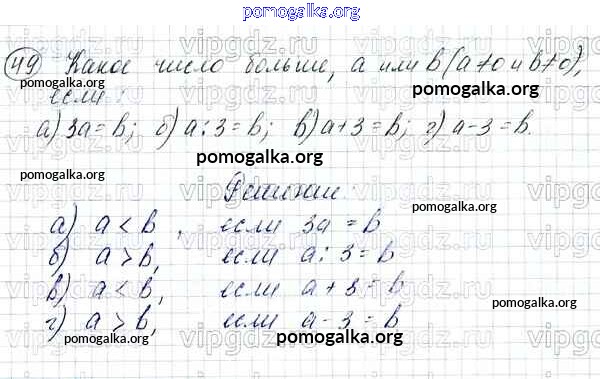 pomogalka.org
49 Какое число больше, а или b (а≠0 и b≠0),
если:
pomogalka.org
а) 3а = b; б) а : 3 = b; в) а + 3 = b; г) а - 3 = b.
pomogalka.org
Решение:
pomogalka.org
а) а < b, если 3а = b
б) а > b, если а : 3 = b
pomogalka.org
в) а < b, если а + 3 = b
г) а > b, если а - 3 = b
pomogalka.org
pomogalka.org
vipgdz.ru